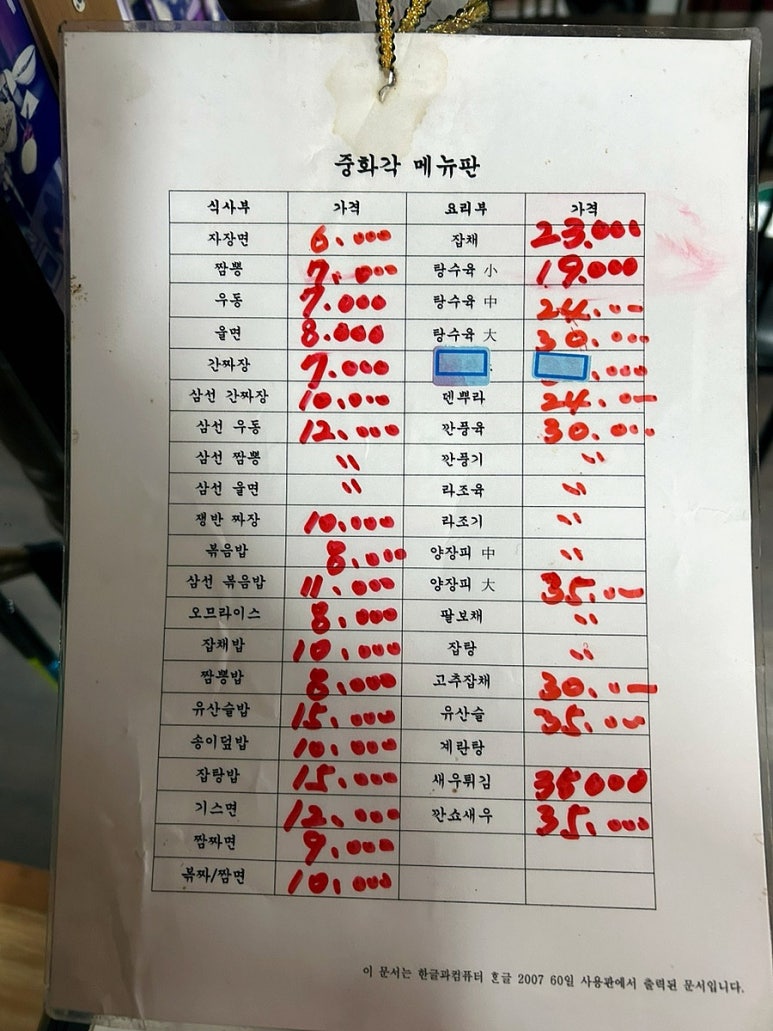 중화각 메뉴판
식사부 가격 요리부 가격
자장면 6.000 잡채 23.000
짬뽕 7.000 탕수육 小 19.000
우동 7.000 탕수육 中 24.000
울면 8.000 탕수육 大 30.000
간짜장 7.000 .000
삼선 간짜장 10.000 덴뿌라 24.000
삼선 우동 12.000 깐풍육 30.000
삼선 짬뽕 〃 깐풍기 〃
삼선 울면 〃 라조육 〃
쟁반 짜장 10.000 라조기 〃
볶음밥 8.000 양장피 中 〃
삼선 볶음밥 11.000 양장피 大 35.000
오므라이스 8.000 팔보채 〃
잡채밥 10.000 잡탕 〃
짬뽕밥 8.000 고추잡채 30.000
유산슬밥 15.000 유산슬 35.000
송이덮밥 10.000 계란탕
잡탕밥 15.000 새우튀김 35000
기스면 12.000 깐쇼새우 35.000
짬짜면 9.000
볶짜/짬면 10.000
이 문서는 한글과컴퓨터 흔글 2007 60일 사용판에서 출력된 문서입니다.